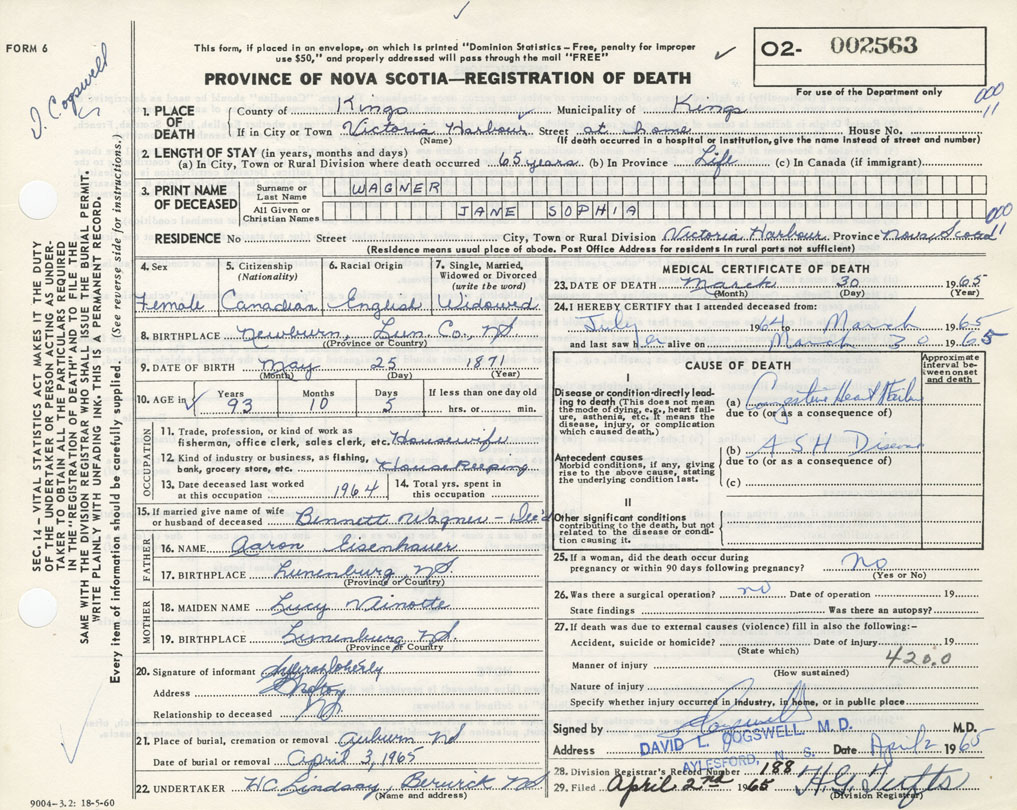 FORM 6
This form, if placed in an envelope, on which is printed "Dominion Statistics—Free, penalty for improper
use $50," and properly addressed will pass through the mail "FREE"
PROVINCE OF NOVA SCOTIA—REGISTRATION OF DEATH
02- 002563
For use of the Department only
D. Cogswell
SEC. 14 – VITAL STATISTICS ACT MAKES IT THE DUTY
OF THE UNDERTAKER OR PERSON ACTING AS UNDER-
TAKER TO OBTAIN ALL THE PARTICULARS REQUIRED
IN THE "REGISTRATION OF DEATH" AND TO FILE THE
SAME WITH THE DIVISION REGISTRAR WHO SHALL ISSUE THE BURIAL PERMIT.
WRITE PLAINLY WITH UNFADING INK. THIS IS A PERMANENT RECORD.
Every item of information should be carefully supplied. (See reverse side for instructions.)
1. PLACE OF DEATH County of Kings Municipality of Kings 000 11
If in City or Town Victoria Harbour Street at home House No.
(Name) (If death occurred in a hospital or institution, give the name instead of street and number)
2. LENGTH OF STAY (in years, months and days)
(a) In City, Town or Rural Division where death occurred 65 years (b) In Province Life (c) In Canada (if immigrant)
3. PRINT NAME OF DECEASED Surname or Last Name WAGNER
All Given or Christian Names JANE SOPHIA
000 11
RESIDENCE No Street City, Town or Rural Division Victoria Harbour Province Nova Scotia
(Residence means usual place of abode. Post Office Address for residents in rural parts not sufficient)
4. Sex 5. Citizenship (Nationality) 6. Racial Origin 7. Single, Married, Widowed or Divorced (write the word)
Female Canadian English Widowed
8. BIRTHPLACE Newburn, Lun. Co., NS
(Province or Country)
9. DATE OF BIRTH May 25 1871
(Month) (Day) (Year)
10. AGE in Years Months Days If less than one day old
93 10 5 hrs. or min.
OCCUPATION
11. Trade, profession, or kind of work as
fisherman, office clerk, sales clerk, etc. Housewife
12. Kind of industry or business, as fishing,
bank, grocery store, etc. House Keeping
13. Date deceased last worked
at this occupation 1964 14. Total yrs. spent in
this occupation
15. If married give name of wife
or husband of deceased Bennett Wagner - Dec'd
FATHER
16. NAME Aaron Eisenhauer
17. BIRTHPLACE Lunenburg, NS
(Province or Country)
MOTHER
18. MAIDEN NAME Lucy Veinotte
19. BIRTHPLACE Lunenburg NS.
(Province or Country
20. Signature of informant
Address
Relationship to deceased
21. Place of burial, cremation or removal Auburn NS
Date of burial or removal April 3, 1965
22. UNDERTAKER WC Lindsay Berwick NS
(Name and address)
9004–3.2: 18-5-60
MEDICAL CERTIFICATE OF DEATH
23. DATE OF DEATH March 30 1965
(Month) (Day) (Year)
24. I HEREBY CERTIFY that I attended deceased from:
July 1964 to March 1965
and last saw her alive on March 30 1965
CAUSE OF DEATH
Approximate
interval be-
tween onset
and death
I
Disease or condition directly lead-
ing to death (This does not mean
the mode of dying, e.g., heart fail-
ure, asthenia, etc. It means the
disease, injury, or complication
which caused death.)
(a) Congestive Heart Failure
due to (or as a consequence of)
Antecedent causes
Morbid conditions, if any, giving
rise to the above cause, stating
the underlying condition last.
(b) A S H Disease
due to (or as a consequence of)
(c)
II
Other significant conditions
contributing to the death, but not
related to the disease or condi-
tion causing it.
25. If a woman, did the death occur during
pregnancy or within 90 days following pregnancy? No
(Yes or No)
26. Was there a surgical operation? no Date of operation 19
State findings Was there an autopsy?
27. If death was due to external causes (violence) fill in also the following:-
Accident, suicide or homicide? Date of injury 19
(State which)
420.0
Manner of injury
(How sustained)
Nature of injury
Specify whether injury occurred in industry, in home, or in public place
Signed by Cogswell M.D.
DAVID L. COGSWELL, M. D.
AYLESFORD, N. S.
Address Date April 2 1965
28. Division Registrar's Record Number 188
29. Filed April 2nd 1965 H.G. Tufts
(Division Registrar)